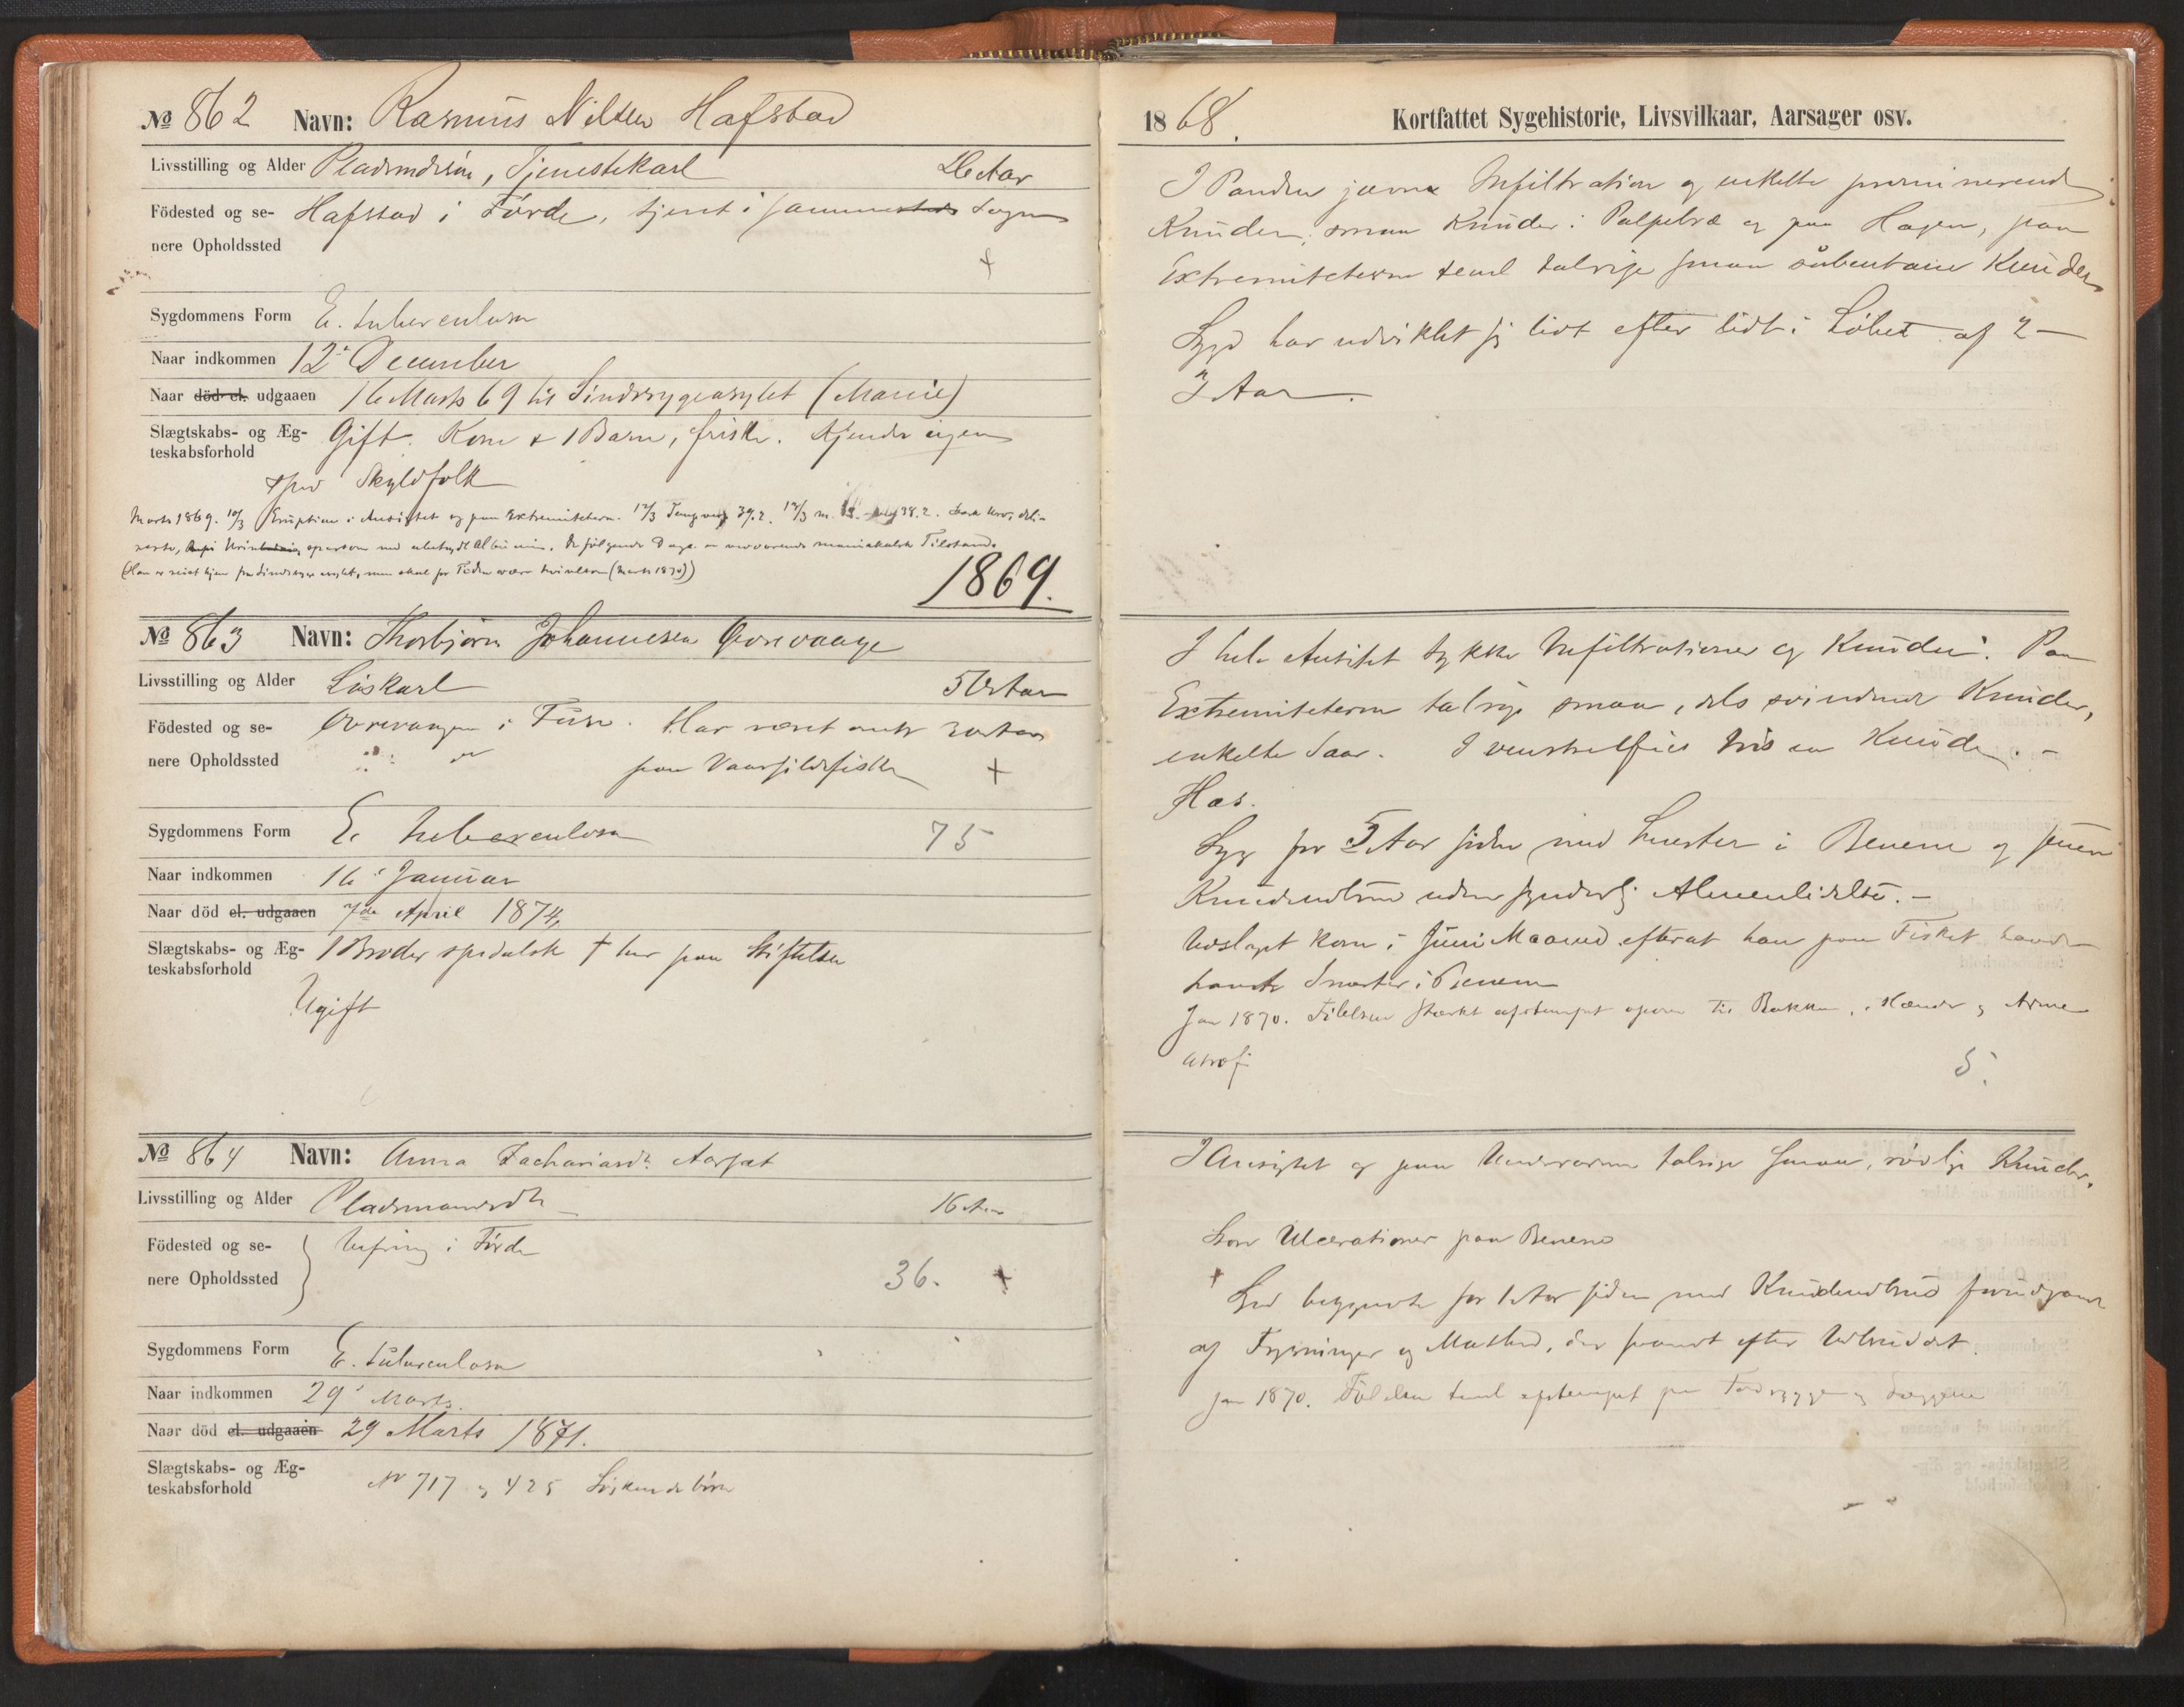 № 862 Navn: Rasmus Nilsen Hafstad
Livsstilling og Alder Pladsmdsøn, Tjenestekarl 26 Aar
Födested og se- Hafstad i Förde, tjent i samme Sogn
nere Opholdssted
+
Sygdommens Form E. tuberculosa
Naar indkommen 12' December
Naar död el. udgaaen 16 Marts 69 til Sindssygeasylet (Manie)
Slægtskabs- og Æg- Gift. Kone & 1 Barn, friske. Kjender ingen
teskabsforhold
sp. Skyldfolk
Marts 1869. 10/3 Eruption i Ansigtet og paa Extremiteterne. 12/3 Temp 39.2. 13/3 m. 38.2.
Urin sparsom med ubetydl Albumin. De følgende Dage maniakalsk Tilstand.
(Han er senest hjem fra Sindssygeasylet, men skal for Tiden være (Marts 1870))
1869.
№ 863 Navn: Thorbjørn Johannesen Øvrevaage
Livsstilling og Alder Løskarl 50 Aar
Födested og se- Øvrevaagen i Fuse. Har været omtr 30 Aar
nere Opholdssted " " " paa Vaarsildfiske
+
Sygdommens Form E. tuberculosa 75
Naar indkommen 16' Januar
Naar död el. udgaaen 7de April 1874
Slægtskabs- og Æg- 1 Broder spedalsk † her paa Stiftelsen
teskabsforhold
Ugift
№ 864 Navn: Anna Zachariasdr. Aarsæt
Livsstilling og Alder Pladsmandsdr 16 Aar
Födested og se- i Förde
nere Opholdssted 36. +
Sygdommens Form E. tuberculosa
Naar indkommen 29' Marts.
Naar död el. udgaaen 29 Marts 1871.
Slægtskabs- og Æg-
teskabsforhold Nr 717 og 425 Søskendebörn
1868. Kortfattet Sygehistorie, Livsvilkaar, Aarsager osv.
I Panden jævn Infiltration og enkelte prominerende
Knuder; smaa Knuder i Palpebræ og paa Hagen, paa
Extremiteterne temml talrige smaa subcutane Knuder
Sygd har udviklet sig lidt efter lidt i Löbet af 2-
3 Aar.
I hele Ansigtet tykke Infiltrationer og Knuder. Paa
Extremiteterne talrige smaa, dels svindende Knuder,
enkelte Saar. I venstre Iris en Knude. -
Hæs.
Syg for 5 Aar siden med Smerter i Benene og senere
Knudeudbrud uden synderlig Almenlidelse. -
Udslaget kom i Juni Maaned efterat han paa Fisket havde
havt Smerter i Benene
Jan 1870. Følelsen stærkt afstumpet Hænder og Arme
atrof
5.
I Ansigtet og paa Underarmene talrige smaa, rødlige Knuder.
Store Ulcerationer paa Benene
+ Sygd begyndte for 1 Aar siden med Knudeudbrud forudgaaet
af Frysninger og Mathed, der svandt efter Udbruddet.
Jan 1870. Følelsen temml afstumpet paa Fodrygge og Læggene